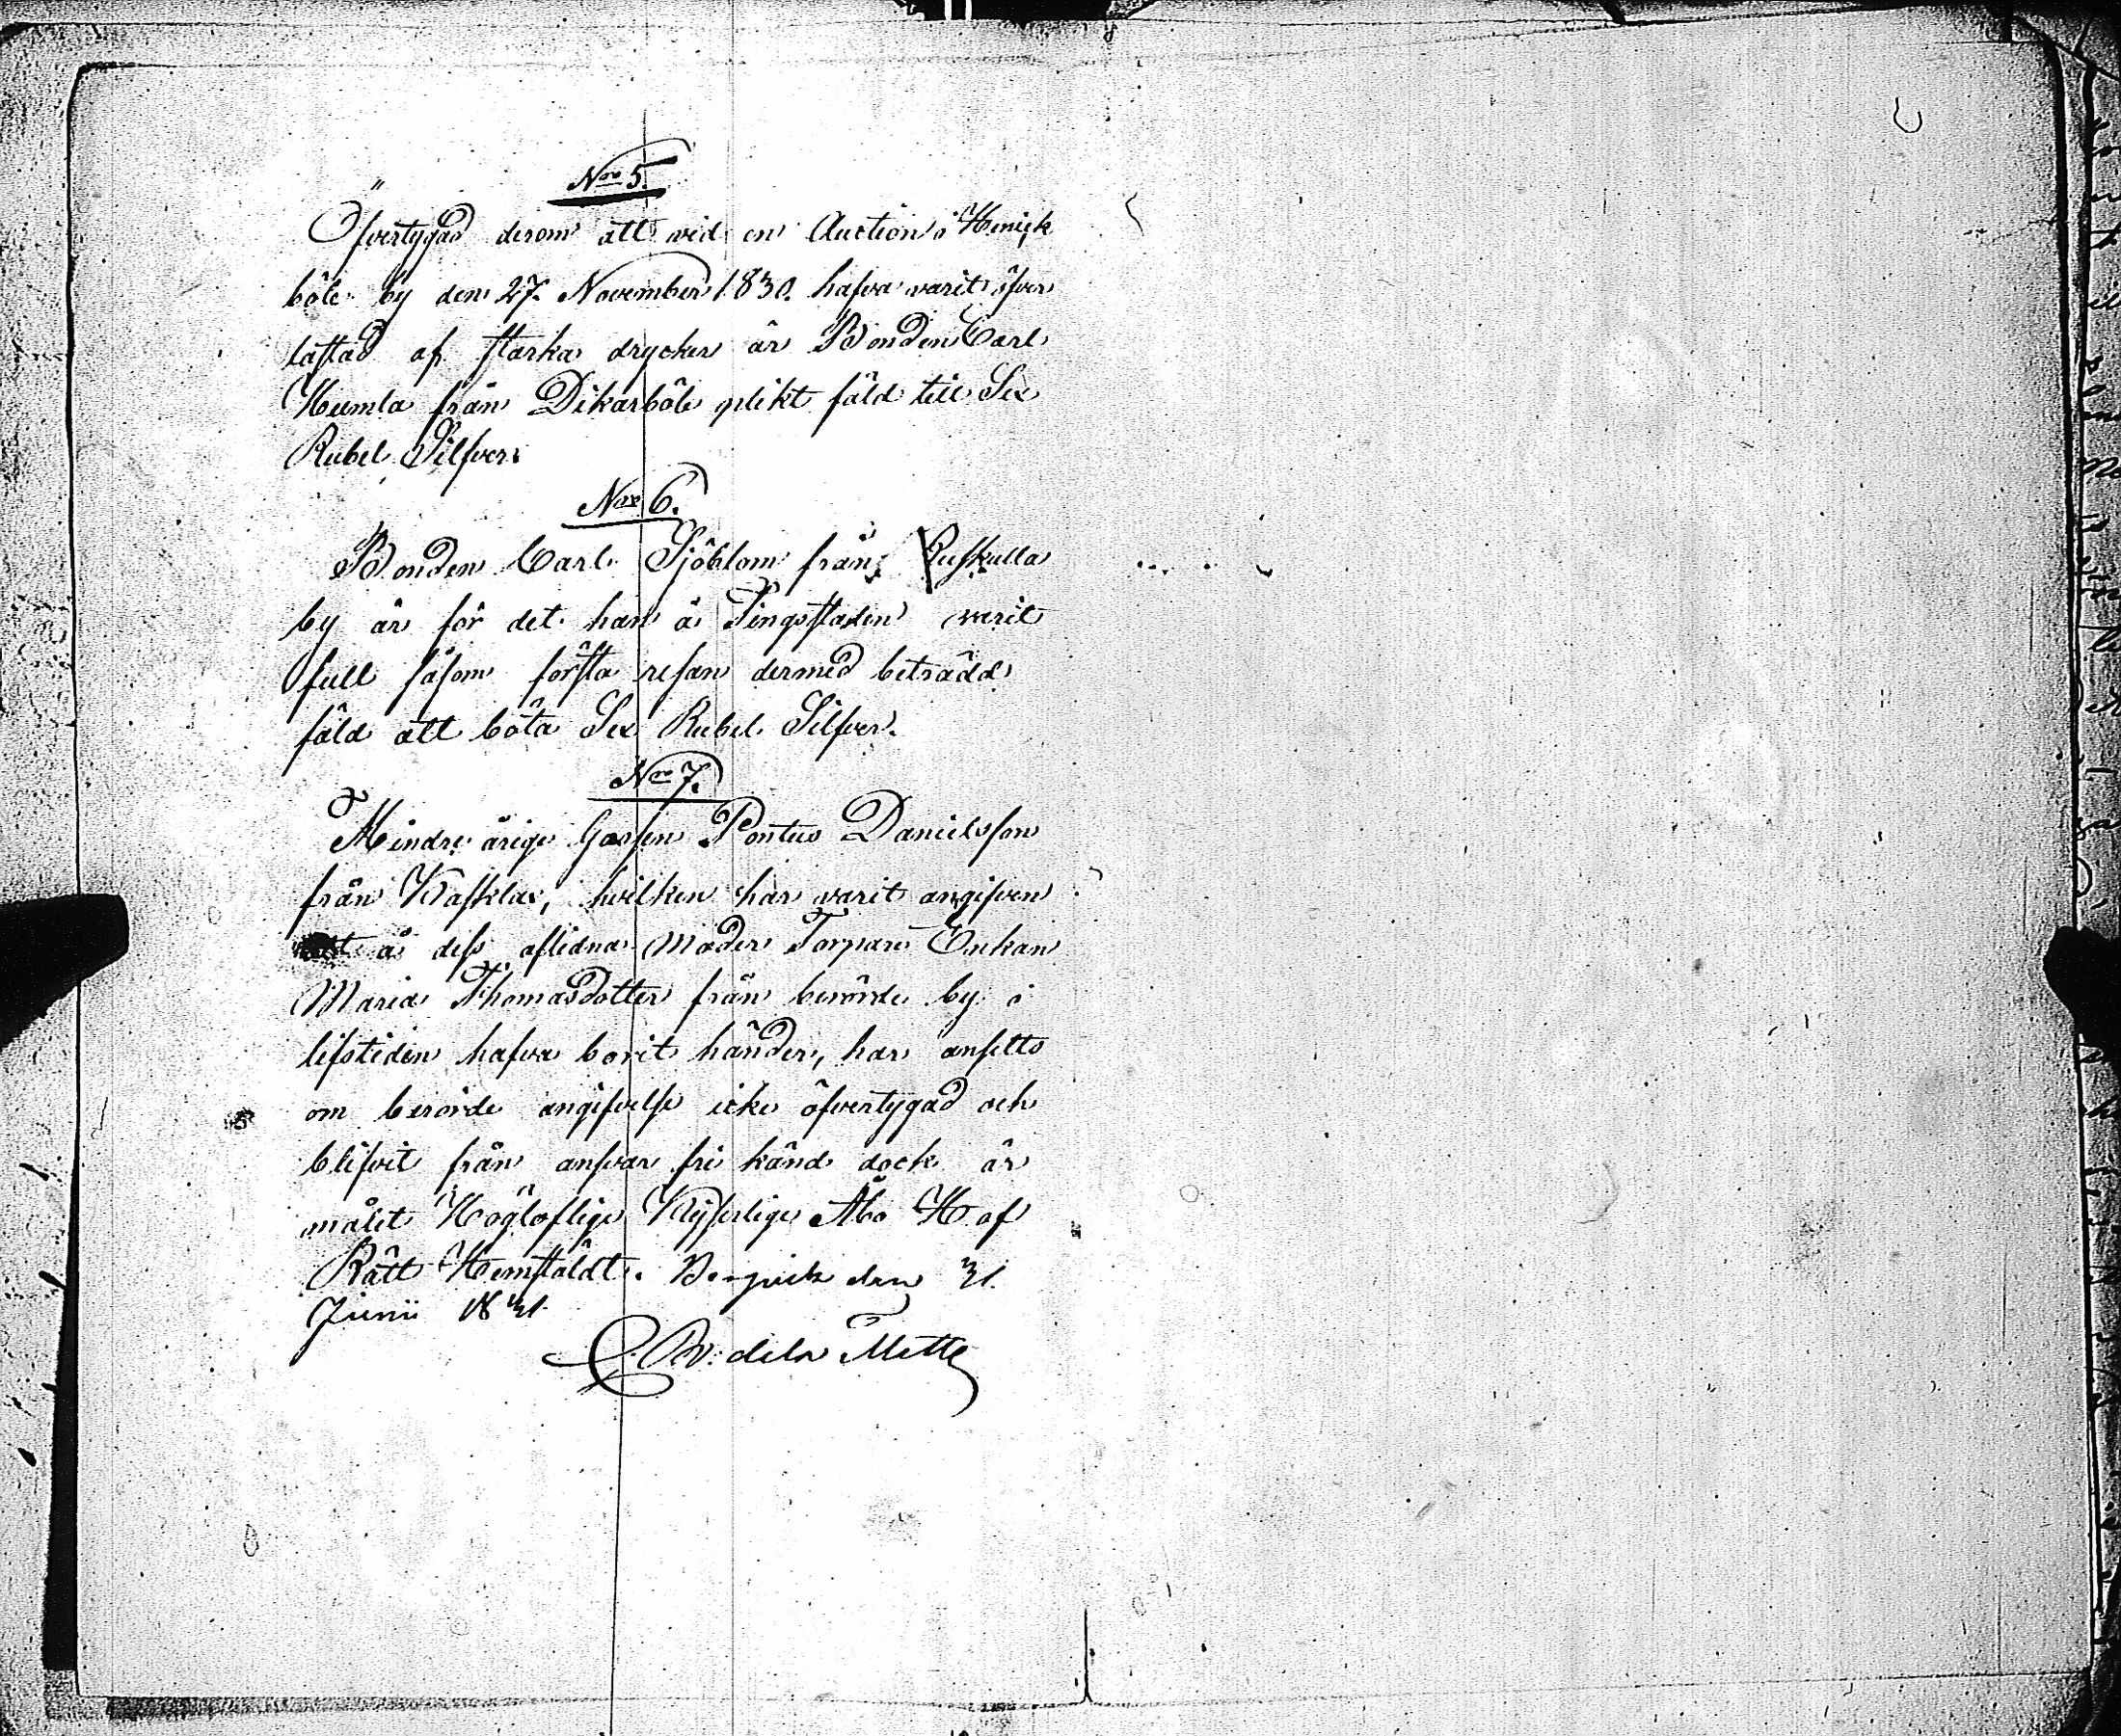 Nro 5.
Öfvertygad derom att vid en Auction i Henrik
böle by den 27. November 1830. hafva varit öfver
lastad af starka drycker är Bonden Carl
Humla från Dikarböle plikt fäld till Sex
Rubel Silfver.
Nro 6.
Bonden Carl Sjöblom från Ruskulla
by är för det han å Tingsstaden varit
full såsom första resan dermed beträdd
fäld att böta Sex Rubel Silfver.
Nro 7.
Minderårige Gossen Pontus Danielsson
från Kasklax, hvilken har varit angifven
att å dess aflidna Moder Torpare Enkan
Maria Thomasdotter från berörde by i
lifstiden hafva borit händer, har ansetts
om berörde angifvelse icke öfvertygad och
blifvit från ansvar fri känd dock är
målet Högloflige Kejserlige Åbo Hof
Rätt Hemstäldt. den 31.
Junii 1831.
de la Motte